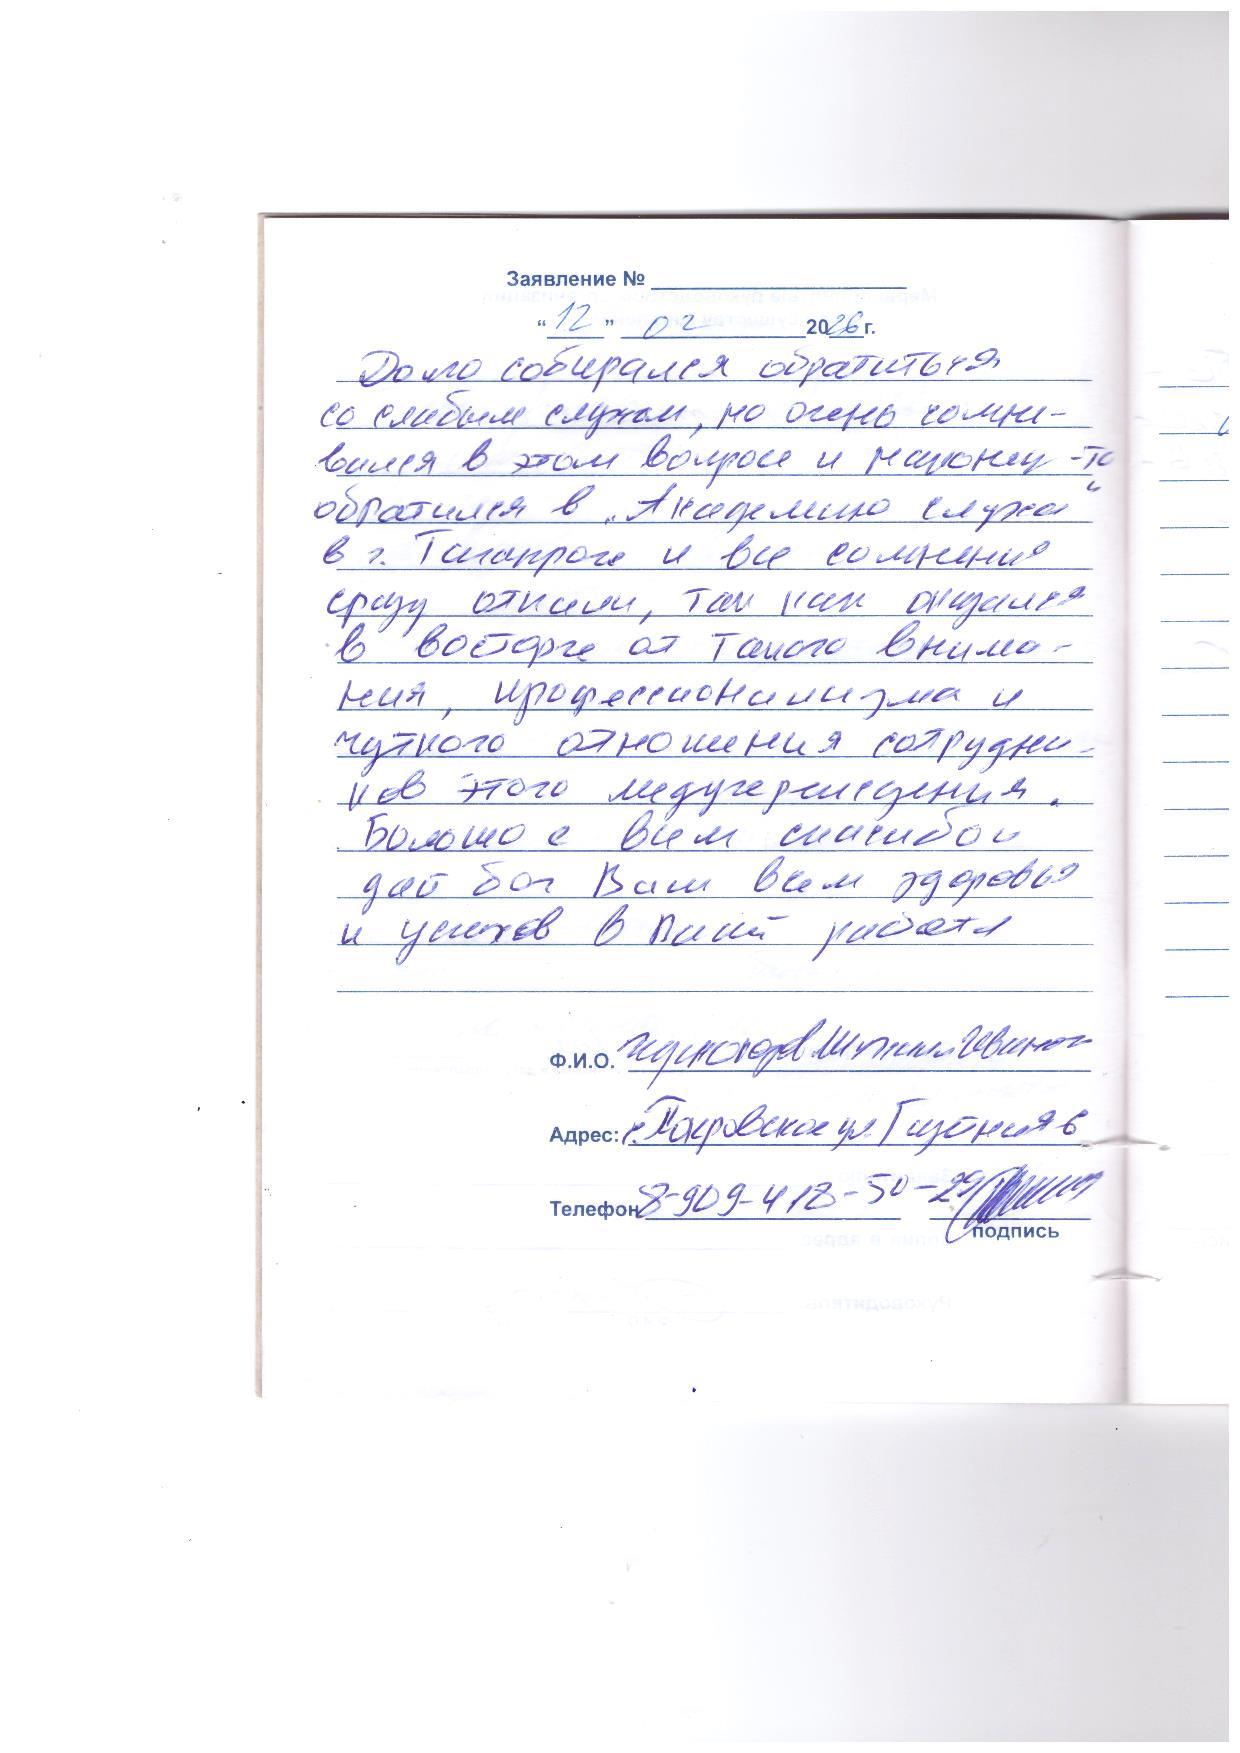 Заявление №
“ 12 ” 02 2026 г.
Долго собирался обратиться
со слабым слухом, но очень сомне-
вался в этом вопросе и наконец-то
обратился в „Академию слуха“
в г. Таганроге и все сомнения
сразу отпали, так как оказался
в восторге от такого внима-
ния, профессионализма и
чуткого отношения сотрудни-
ков этого медучереждения.
Большое всем спасибо и
дай бог Вам всем здоровья
и успехов в Вашей работе
Ф.И.О. Михаил Иванович
Адрес: с. Покровское ул.
Телефон 8-909-418-50-29
подпись